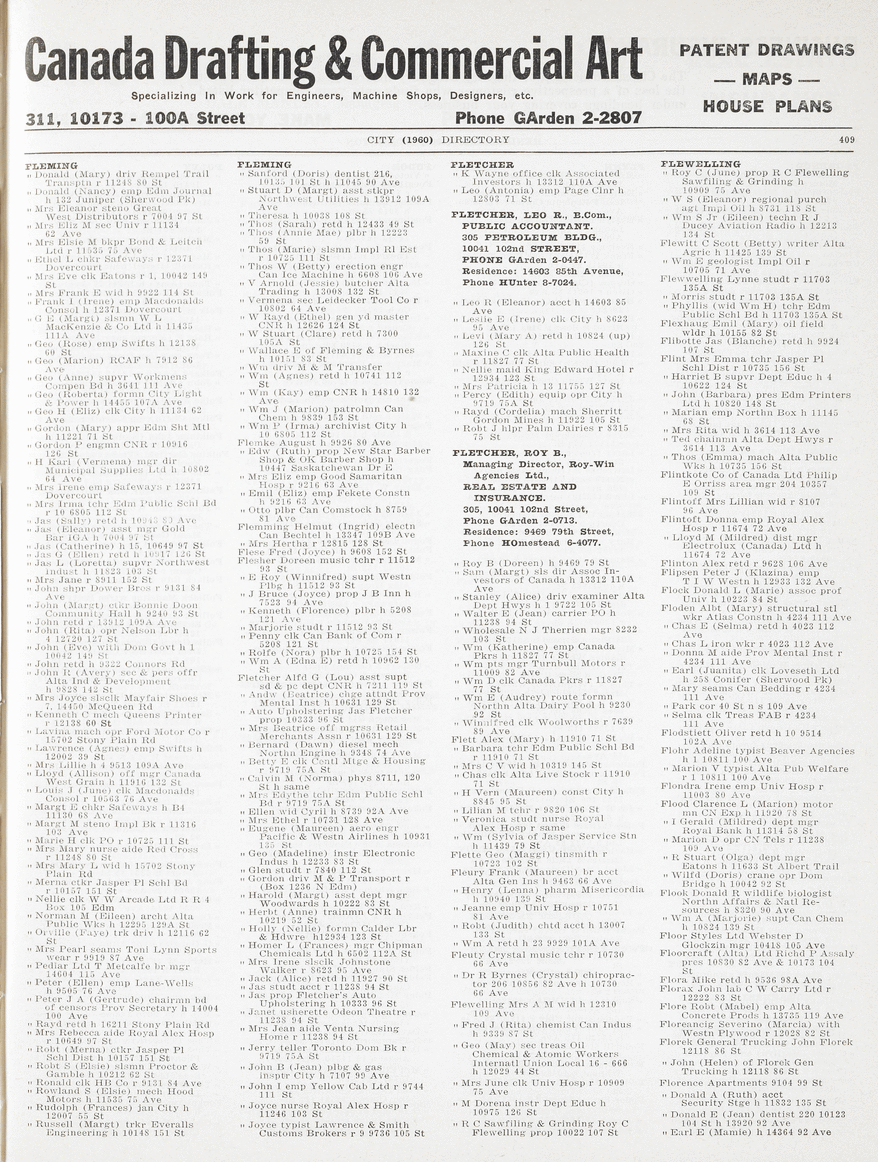 Canada Drafting & Commercial Art
Specializing In Work for Engineers, Machine Shops, Designers, etc.
311, 10173 - 100A Street Phone GArden 2-2807
PATENT DRAWINGS
— MAPS —
HOUSE PLANS
CITY (1960) DIRECTORY 409
FLEMING
" Donald (Mary) driv Rempel Trail
Transptn r 11248 80 St
" Donald (Nancy) emp Edm Journal
h 132 Juniper (Sherwood Pk)
" Mrs Eleanor steno Great
West Distributors r 7004 97 St
" Mrs Eliz M sec Univ r 11134
62 Ave
" Mrs Elsie M bkpr Bond & Leitch
Ltd r 11535 75 Ave
" Ethel L chkr Safeways r 12371
Dovercourt
" Mrs Eve clk Eatons r 1, 10042 149
St
" Mrs Frank E wid h 9922 114 St
" Frank I (Irene) emp Macdonalds
Consol h 12371 Dovercourt
" G E (Margt) slsmn W L
MacKenzie & Co Ltd h 11435
111A Ave
" Geo (Rose) emp Swifts h 12138
60 St
" Geo (Marion) RCAF h 7912 86
Ave
" Geo (Anne) supvr Workmens
Compen Bd h 3641 111 Ave
" Geo (Roberta) formn City Light
& Power h 14455 107A Ave
" Geo H (Eliz) clk City h 11134 62
Ave
" Gordon (Mary) appr Edm Sht Mtl
h 11221 71 St
" Gordon P engmn CNR r 10916
126 St
" H Karl (Vermena) mgr dir
Municipal Supplies Ltd h 10802
64 Ave
" Mrs Irene emp Safeways r 12371
Dovercourt
" Mrs Irma tchr Edm Public Schl Bd
r 10 6805 112 St
" Jas (Sally) retd h 83 Ave
" Jas (Eleanor) asst mgr Gold
Bar IGA h 7004 97 St
" Jas (Catherine) h 15, 10649 97 St
" Jas G (Ellen) retd h 10917 126 St
" Jas L (Loretta) supvr Northwest
Indust h 11823 103 St
" Mrs Jane r 8911 152 St
" John shpr Dower Bros r 9131 84
Ave
" John (Margt) ckr Bonnie Doon
Community Hall h 9240 93 St
" John retd r 13912 109A Ave
" John (Rita) opr Nelson Lbr h
4 12720 127 St
" John (Eve) with Dom Govt h 1
10042 149 St
" John retd h 9322 Connors Rd
" John R (Avery) sec & pers offr
Alta Ind & Development
h 9828 142 St
" Mrs Joyce slsclk Mayfair Shoes r
7, 14450 McQueen Rd
" Kenneth C mech Queens Printer
r 12138 60 St
" Lavina mach opr Ford Motor Co r
15702 Stony Plain Rd
" Lawrence (Agnes) emp Swifts h
12002 39 St
" Mrs Lillie h 4 9513 109A Ave
" Lloyd (Allison) off mgr Canada
West Grain h 11916 132 St
" Louis J (June) clk Macdonalds
Consol r 10563 76 Ave
" Margt E chkr Safeways h B4
11130 68 Ave
" Margt M steno Impl Bk r 11316
103 Ave
" Marie H clk PO r 10725 111 St
" Mrs Mary nurse aide Red Cross
r 11248 80 St
" Mrs Mary L wid h 15702 Stony
Plain Rd
" Merna ctkr Jasper Pl Schl Bd
r 10157 151 St
" Nellie clk W W Arcade Ltd R R 4
Box 105 Edm
" Norman M (Eileen) archt Alta
Public Wks h 12295 129A St
" Orville (Faye) trk driv h 12116 62
St
" Mrs Pearl seams Toni Lynn Sports
wear r 9919 87 Ave
" Pediar Ltd T Metcalfe br mgr
14604 115 Ave
" Peter (Ellen) emp Lane-Wells
h 9505 76 Ave
" Peter J A (Gertrude) chairmn bd
of censors Prov Secretary h 14004
100 Ave
" Rayd retd h 16211 Stony Plain Rd
" Mrs Rebecca aide Royal Alex Hosp
r 10649 97 St
" Robt (Merna) ctkr Jasper Pl
Schl Dist h 10157 151 St
" Robt S (Elsie) slsmn Proctor &
Gamble h 10212 62 St
" Ronald clk HB Co r 9131 84 Ave
" Rowland S (Elsie) mech Hood
Motors h 11535 75 Ave
" Rudolph (Frances) jan City h
12007 55 St
" Russell (Margt) trkr Everalls
Engineering h 10148 151 St
FLEMING
" Sanford (Doris) dentist 216,
10135 101 St h 11045 90 Ave
" Stuart D (Margt) asst stkpr
Northwest Utilities h 13912 109A
Ave
" Theresa h 10038 108 St
" Thos (Sarah) retd h 12433 49 St
" Thos (Annie Mae) plbr h 12223
59 St
" Thos (Marie) slsmn Impl Rl Est
r 10725 111 St
" Thos W (Betty) erection engr
Can Ice Machine h 6608 106 Ave
" V Arnold (Jessie) butcher Alta
Trading h 13008 132 St
" Vermena sec Leidecker Tool Co r
10802 64 Ave
" W Rayd (Ethel) gen yd master
CNR h 12626 124 St
" W Stuart (Clare) retd h 7300
105A St
" Wallace E of Fleming & Byrnes
h 10151 83 St
" Wm driv M & M Transfer
" Wm (Agnes) retd h 10741 112
St
" Wm (Kay) emp CNR h 14810 132
Ave
" Wm J (Marion) patrolmn Can
Chem h 9839 153 St
" Wm P (Irma) archivist City h
10 6805 112 St
Flemke August h 9926 80 Ave
" Edw (Ruth) prop New Star Barber
Shop & OK Barber Shop h
10447 Saskatchewan Dr E
" Mrs Eliz emp Good Samaritan
Hosp r 9216 63 Ave
" Emil (Eliz) emp Fekete Constn
h 9216 63 Ave
" Otto plbr Can Comstock h 8759
81 Ave
Flemming Helmut (Ingrid) electn
Can Bechtel h 13347 109B Ave
" Mrs Hertha r 12815 128 St
Flese Fred (Joyce) h 9608 152 St
Flesher Doreen music tchr r 11512
93 St
" E Roy (Winnifred) supt Westn
Plbg h 11512 93 St
" J Bruce (Joyce) prop J B Inn h
7523 94 Ave
" Kenneth (Florence) plbr h 5208
121 Ave
" Marjorie studt r 11512 93 St
" Penny clk Can Bank of Com r
5208 121 Ave
" Rolfe (Nora) plbr h 10725 154 St
" Wm A (Edna E) retd h 10962 130
St
Fletcher Alfd G (Lou) asst supt
sd & pc dept CNR h 7211 119 St
" Andw (Beatrice) chge attndt Prov
Mental Inst h 10631 129 St
" Auto Upholstering Jas Fletcher
prop 10333 96 St
" Mrs Beatrice off mgrss Retail
Merchants Assn r 10631 129 St
" Bernard (Dawn) diesel mech
Northn Engine h 9348 74 Ave
" Betty E clk Centl Mtge & Housing
r 9719 75A St
" Calvin M (Norma) phys 8711, 120
St h same
" Mrs Edythe tchr Edm Public Schl
Bd r 9719 75A St
" Ellen wid Cyril h 8739 92A Ave
" Mrs Ethel r 10731 128 Ave
" Eugene (Maureen) aero engr
Pacific & Westn Airlines h 10931
135 St
" Geo (Madeline) instr Electronic
Indus h 12233 83 St
" Glen studt r 7840 112 St
" Gordon driv M & P Transport r
(Box 1236 N Edm)
" Harold (Margt) asst dept mgr
Woodwards h 10222 83 St
" Herbt (Anne) trainmn CNR h
10219 52 St
" Holly (Nellie) formn Calder Lbr
& Hdwre h12934 123 St
" Homer L (Frances) mgr Chipman
Chemicals Ltd h 6502 112A St
" Mrs Irene slsclk Johnstone
Walker r 8623 95 Ave
" Jack (Alice) retd h 11927 90 St
" Jas studt acct r 11238 94 St
" Jas prop Fletcher's Auto
Upholstering h 10333 96 St
" Janet usherette Odeon Theatre r
11238 94 St
" Mrs Jean aide Venta Nursing
Home r 11238 94 St
" Jerry teller Toronto Dom Bk r
9719 75A St
" John B (Jean) plbg & gas
insptr City h 7107 99 Ave
" John I emp Yellow Cab Ltd r 9744
111 St
" Joyce nurse Royal Alex Hosp r
11246 103 St
" Joyce typist Lawrence & Smith
Customs Brokers r 9 9736 105 St
FLETCHER
" K Wayne office clk Associated
Investors h 13312 110A Ave
" Leo (Antonia) emp Page Clnr h
12803 71 St
FLETCHER, LEO R., B.Com.,
PUBLIC ACCOUNTANT.
305 PETROLEUM BLDG.,
10041 102nd STREET,
PHONE GArden 2-0447.
Residence: 14603 85th Avenue,
Phone HUnter 8-7024.
" Leo R (Eleanor) acct h 14603 85
Ave
" Leslie E (Irene) clk City h 8623
95 Ave
" Levi (Mary A) retd h 10824 (up)
126 St
" Maxine C clk Alta Public Health
r 11827 77 St
" Nellie maid King Edward Hotel r
12934 123 St
" Mrs Patricia h 13 11755 127 St
" Percy (Edith) equip opr City h
9719 75A St
" Rayd (Cordelia) mach Sherritt
Gordon Mines h 11922 105 St
" Robt J hlpr Palm Dairies r 8315
75 St
FLETCHER, ROY B.,
Managing Director, Roy-Win
Agencies Ltd.,
REAL ESTATE AND
INSURANCE.
305, 10041 102nd Street,
Phone GArden 2-0713.
Residence: 9469 79th Street,
Phone HOmestead 6-4077.
" Roy B (Doreen) h 9469 79 St
" Sam (Margt) sls dir Assoc In-
vestors of Canada h 13312 110A
Ave
" Stanley (Alice) driv examiner Alta
Dept Hwys h 1 9722 105 St
" Walter E (Jean) carrier PO h
11238 94 St
" Wholesale N J Therrien mgr 8232
103 St
" Wm (Katherine) emp Canada
Pkrs h 11827 77 St
" Wm pts mgr Turnbull Motors r
11009 82 Ave
" Wm D clk Canada Pkrs r 11827
77 St
" Wm E (Audrey) route formn
Northn Alta Dairy Pool h 9230
92 St
" Winnifred clk Woolworths r 7639
89 Ave
Flett Alex (Mary) h 11910 71 St
" Barbara tchr Edm Public Schl Bd
r 11910 71 St
" Mrs C V wid h 10319 145 St
" Chas clk Alta Live Stock r 11910
71 St
" H Vern (Maureen) const City h
8845 95 St
" Lillian M tchr r 9820 106 St
" Veronica studt nurse Royal
Alex Hosp r same
" Wm (Sylvia) of Jasper Service Stn
h 11439 79 St
Flette Geo (Maggi) tinsmith r
10723 102 St
Fleury Frank (Maureen) br acct
Alta Gen Ins h 9463 66 Ave
" Henry (Lenna) pharm Misericordia
h 10940 139 St
" Jeanne emp Univ Hosp r 10751
81 Ave
" Robt (Judith) chtd acct h 13007
133 St
" Wm A retd h 23 9929 101A Ave
Fleuty Crystal music tchr r 10730
66 Ave
" Dr R Byrnes (Crystal) chiroprac-
tor 206 10856 82 Ave h 10730
66 Ave
Flewelling Mrs A M wid h 12310
109 Ave
" Fred J (Rita) chemist Can Indus
h 9339 87 St
" Geo (May) sec treas Oil
Chemical & Atomic Workers
Internatl Union Local 16 - 666
h 12029 44 St
" Mrs June clk Univ Hosp r 10909
75 Ave
" M Dorena instr Dept Educ h
10975 126 St
" R C Sawfiling & Grinding Roy C
Flewelling prop 10022 107 St
FLEWELLING
" Roy C (June) prop R C Flewelling
Sawfiling & Grinding h
10909 75 Ave
" W S (Eleanor) regional purch
agt Impl Oil h 8731 118 St
" Wm S Jr (Eileen) techn R J
Ducey Aviation Radio h 12213
134 St
Flewitt C Scott (Betty) writer Alta
Agric h 11425 139 St
" Wm E geologist Impl Oil r
10705 71 Ave
Flewwelling Lynne studt r 11703
135A St
" Morris studt r 11703 135A St
" Phyllis (wid Wm H) tchr Edm
Public Schl Bd h 11703 135A St
Flexhaug Emil (Mary) oil field
wldr h 10155 82 St
Flibotte Jas (Blanche) retd h 9924
107 St
Flint Mrs Emma tchr Jasper Pl
Schl Dist r 10735 156 St
" Harriet B supvr Dept Educ h 4
10622 124 St
" John (Barbara) pres Edm Printers
Ltd h 10820 148 St
" Marian emp Northn Box h 11145
68 St
" Mrs Rita wid h 3614 113 Ave
" Ted chainmn Alta Dept Hwys r
3614 113 Ave
" Thos (Emma) mach Alta Public
Wks h 10735 156 St
Flintkote Co of Canada Ltd Philip
E Orriss area mgr 204 10357
109 St
Flintoff Mrs Lillian wid r 8107
96 Ave
Flintoft Donna emp Royal Alex
Hosp r 11674 72 Ave
" Lloyd M (Mildred) dist mgr
Electrolux (Canada) Ltd h
11674 72 Ave
Flinton Alex retd r 9628 106 Ave
Flipsen Peter J (Klazina) emp
T I W Westn h 12933 132 Ave
Flock Donald L (Marie) assoc prof
Univ h 10223 84 St
Floden Albt (Mary) structural stl
wkr Atlas Constn h 4234 111 Ave
" Chas E (Selma) retd h 4023 112
Ave
" Chas L iron wkr r 4023 112 Ave
" Donna M aide Prov Mental Inst r
4234 111 Ave
" Earl (Juanita) clk Loveseth Ltd
h 258 Conifer (Sherwood Pk)
" Mary seams Can Bedding r 4234
111 Ave
" Park cor 40 St n s 109 Ave
" Selma clk Treas FAB r 4234
111 Ave
Flodstiett Oliver retd h 10 9514
102A Ave
Flohr Adeline typist Beaver Agencies
h 1 10811 100 Ave
" Marion V typist Alta Pub Welfare
r 1 10811 100 Ave
Flondra Irene emp Univ Hosp r
11003 80 Ave
Flood Clarence L (Marion) motor
mn CN Exp h 11920 78 St
" I Gerald (Mildred) dept mgr
Royal Bank h 11314 58 St
" Marion D opr CN Tels r 11238
109 Ave
" R Stuart (Olga) dept mgr
Eatons h 11633 St Albert Trail
" Wilfd (Doris) crane opr Dom
Bridge h 10042 92 St
Flook Donald R wildlife biologist
Northn Affairs & Natl Re-
sources h 8320 90 Ave
" Wm A (Marjorie) supt Can Chem
h 10824 139 St
Floor Styles Ltd Webster D
Glockzin mgr 10418 105 Ave
Floorcraft (Alta) Ltd Richd P Assaly
pres 10830 82 Ave & 10173 104
St
Flora Mike retd h 9536 98A Ave
Florax John lab C W Carry Ltd r
12222 83 St
Flore Robt (Mabel) emp Alta
Concrete Prods h 13735 119 Ave
Floreancig Severino (Marcia) with
Westn Plywood r 12028 82 St
Florek General Trucking John Florek
12118 86 St
" John (Helen) of Florek Gen
Trucking h 12118 86 St
Florence Apartments 9104 99 St
" Donald A (Ruth) acct
Security Stge h 11832 135 St
" Donald E (Jean) dentist 220 10123
104 St h 13920 92 Ave
" Earl E (Mamie) h 14364 92 Ave